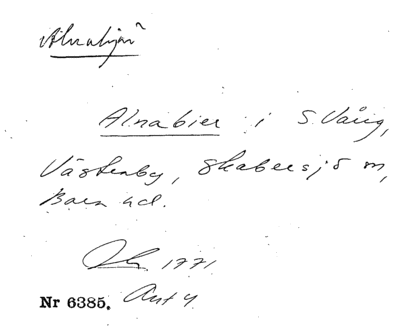 Alnabjär
Alnabier i S. Vång,
Västraby, Skabersjö m,
Bara hd.
1771.
Nr 6385. Akt 4